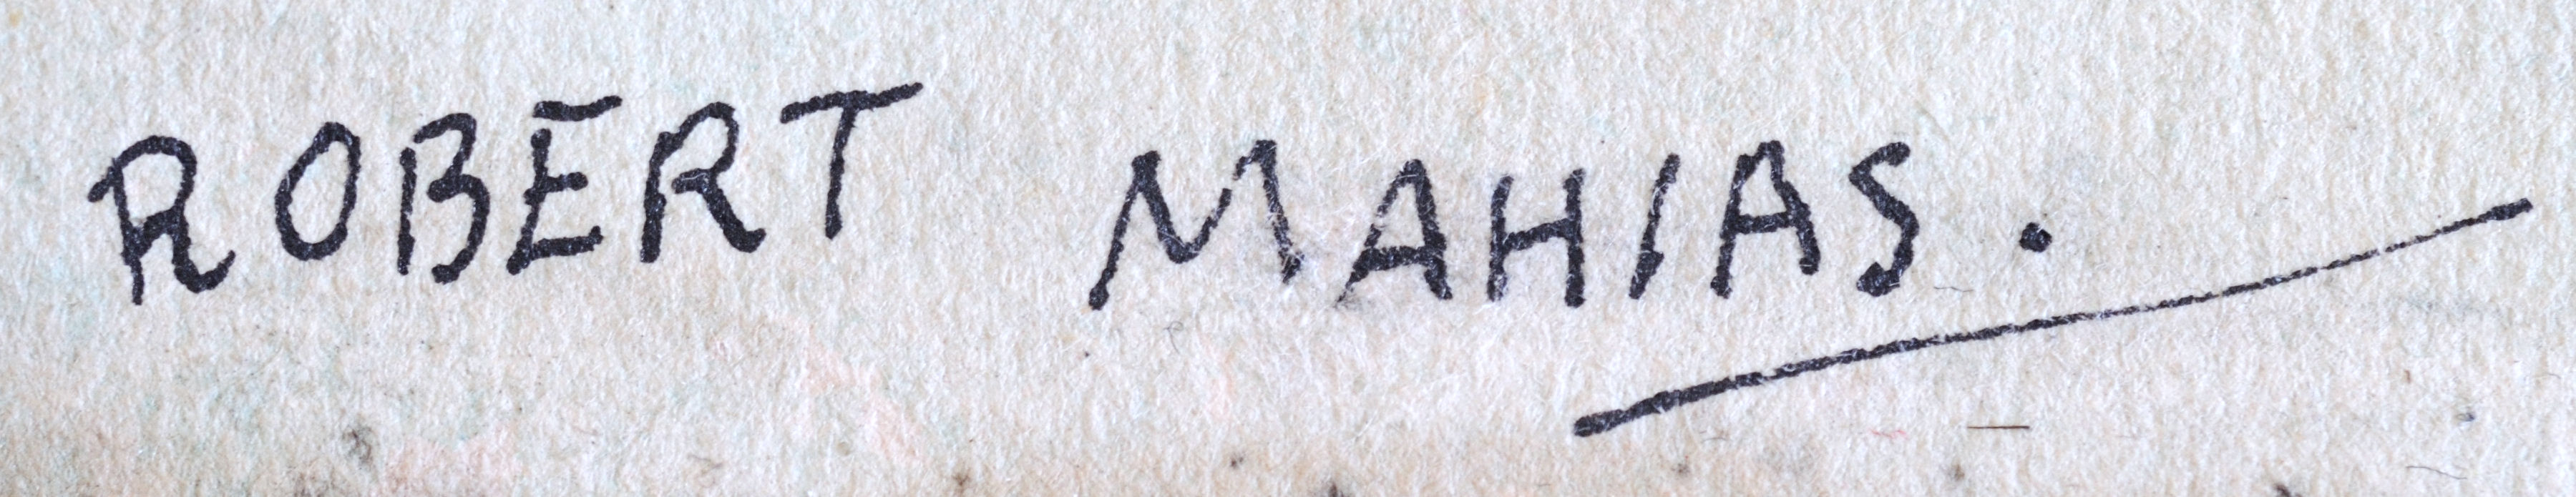 ROBERT MAHIAS.